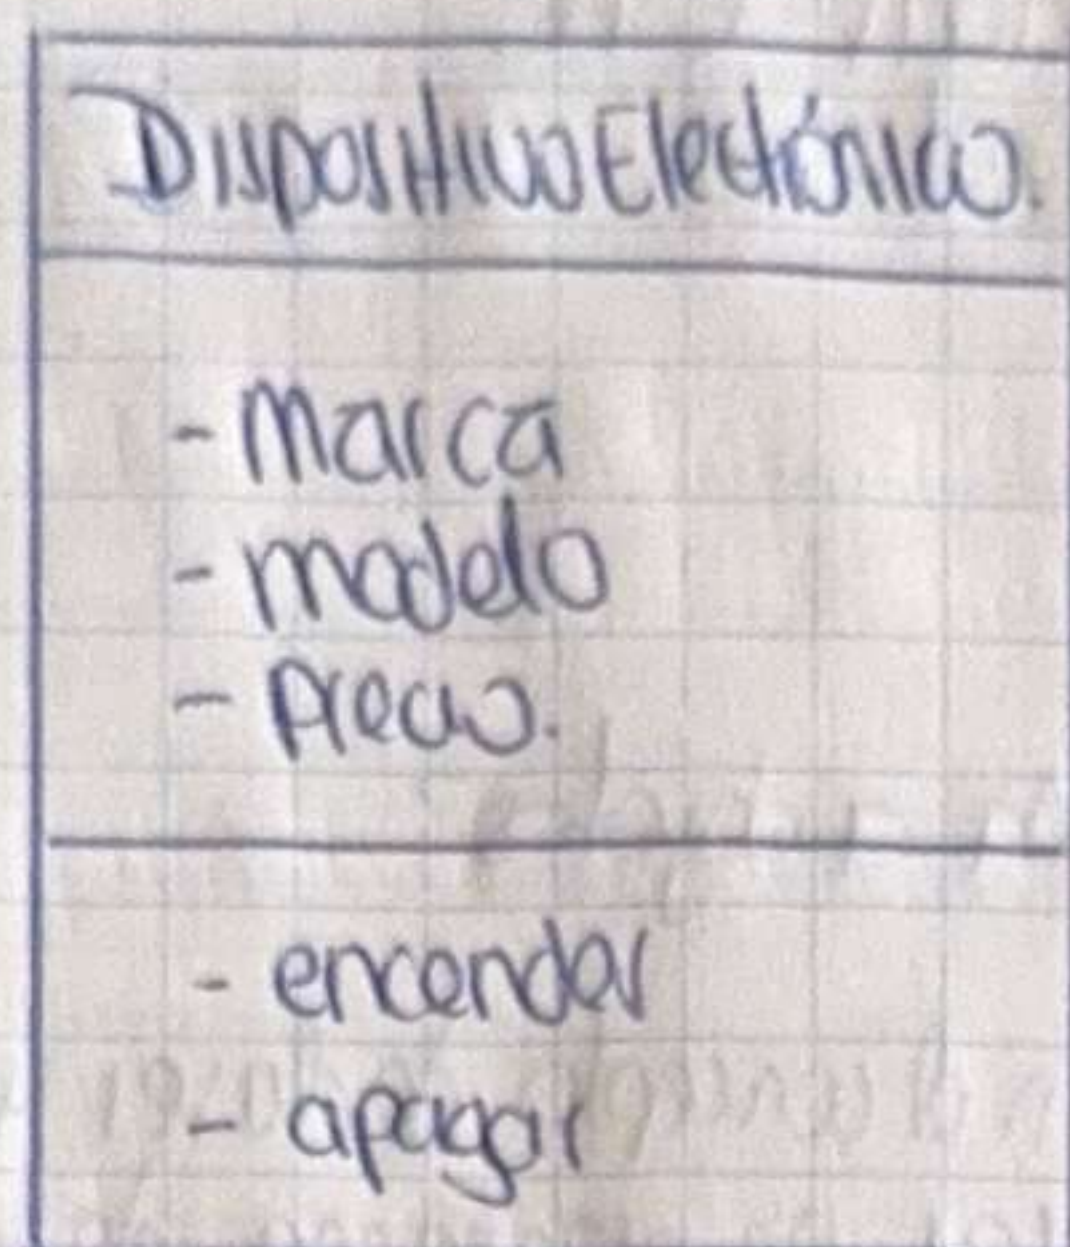 DispositivoElectrónico.
- Marca
- modelo
- Precio.
- encender
- apagar